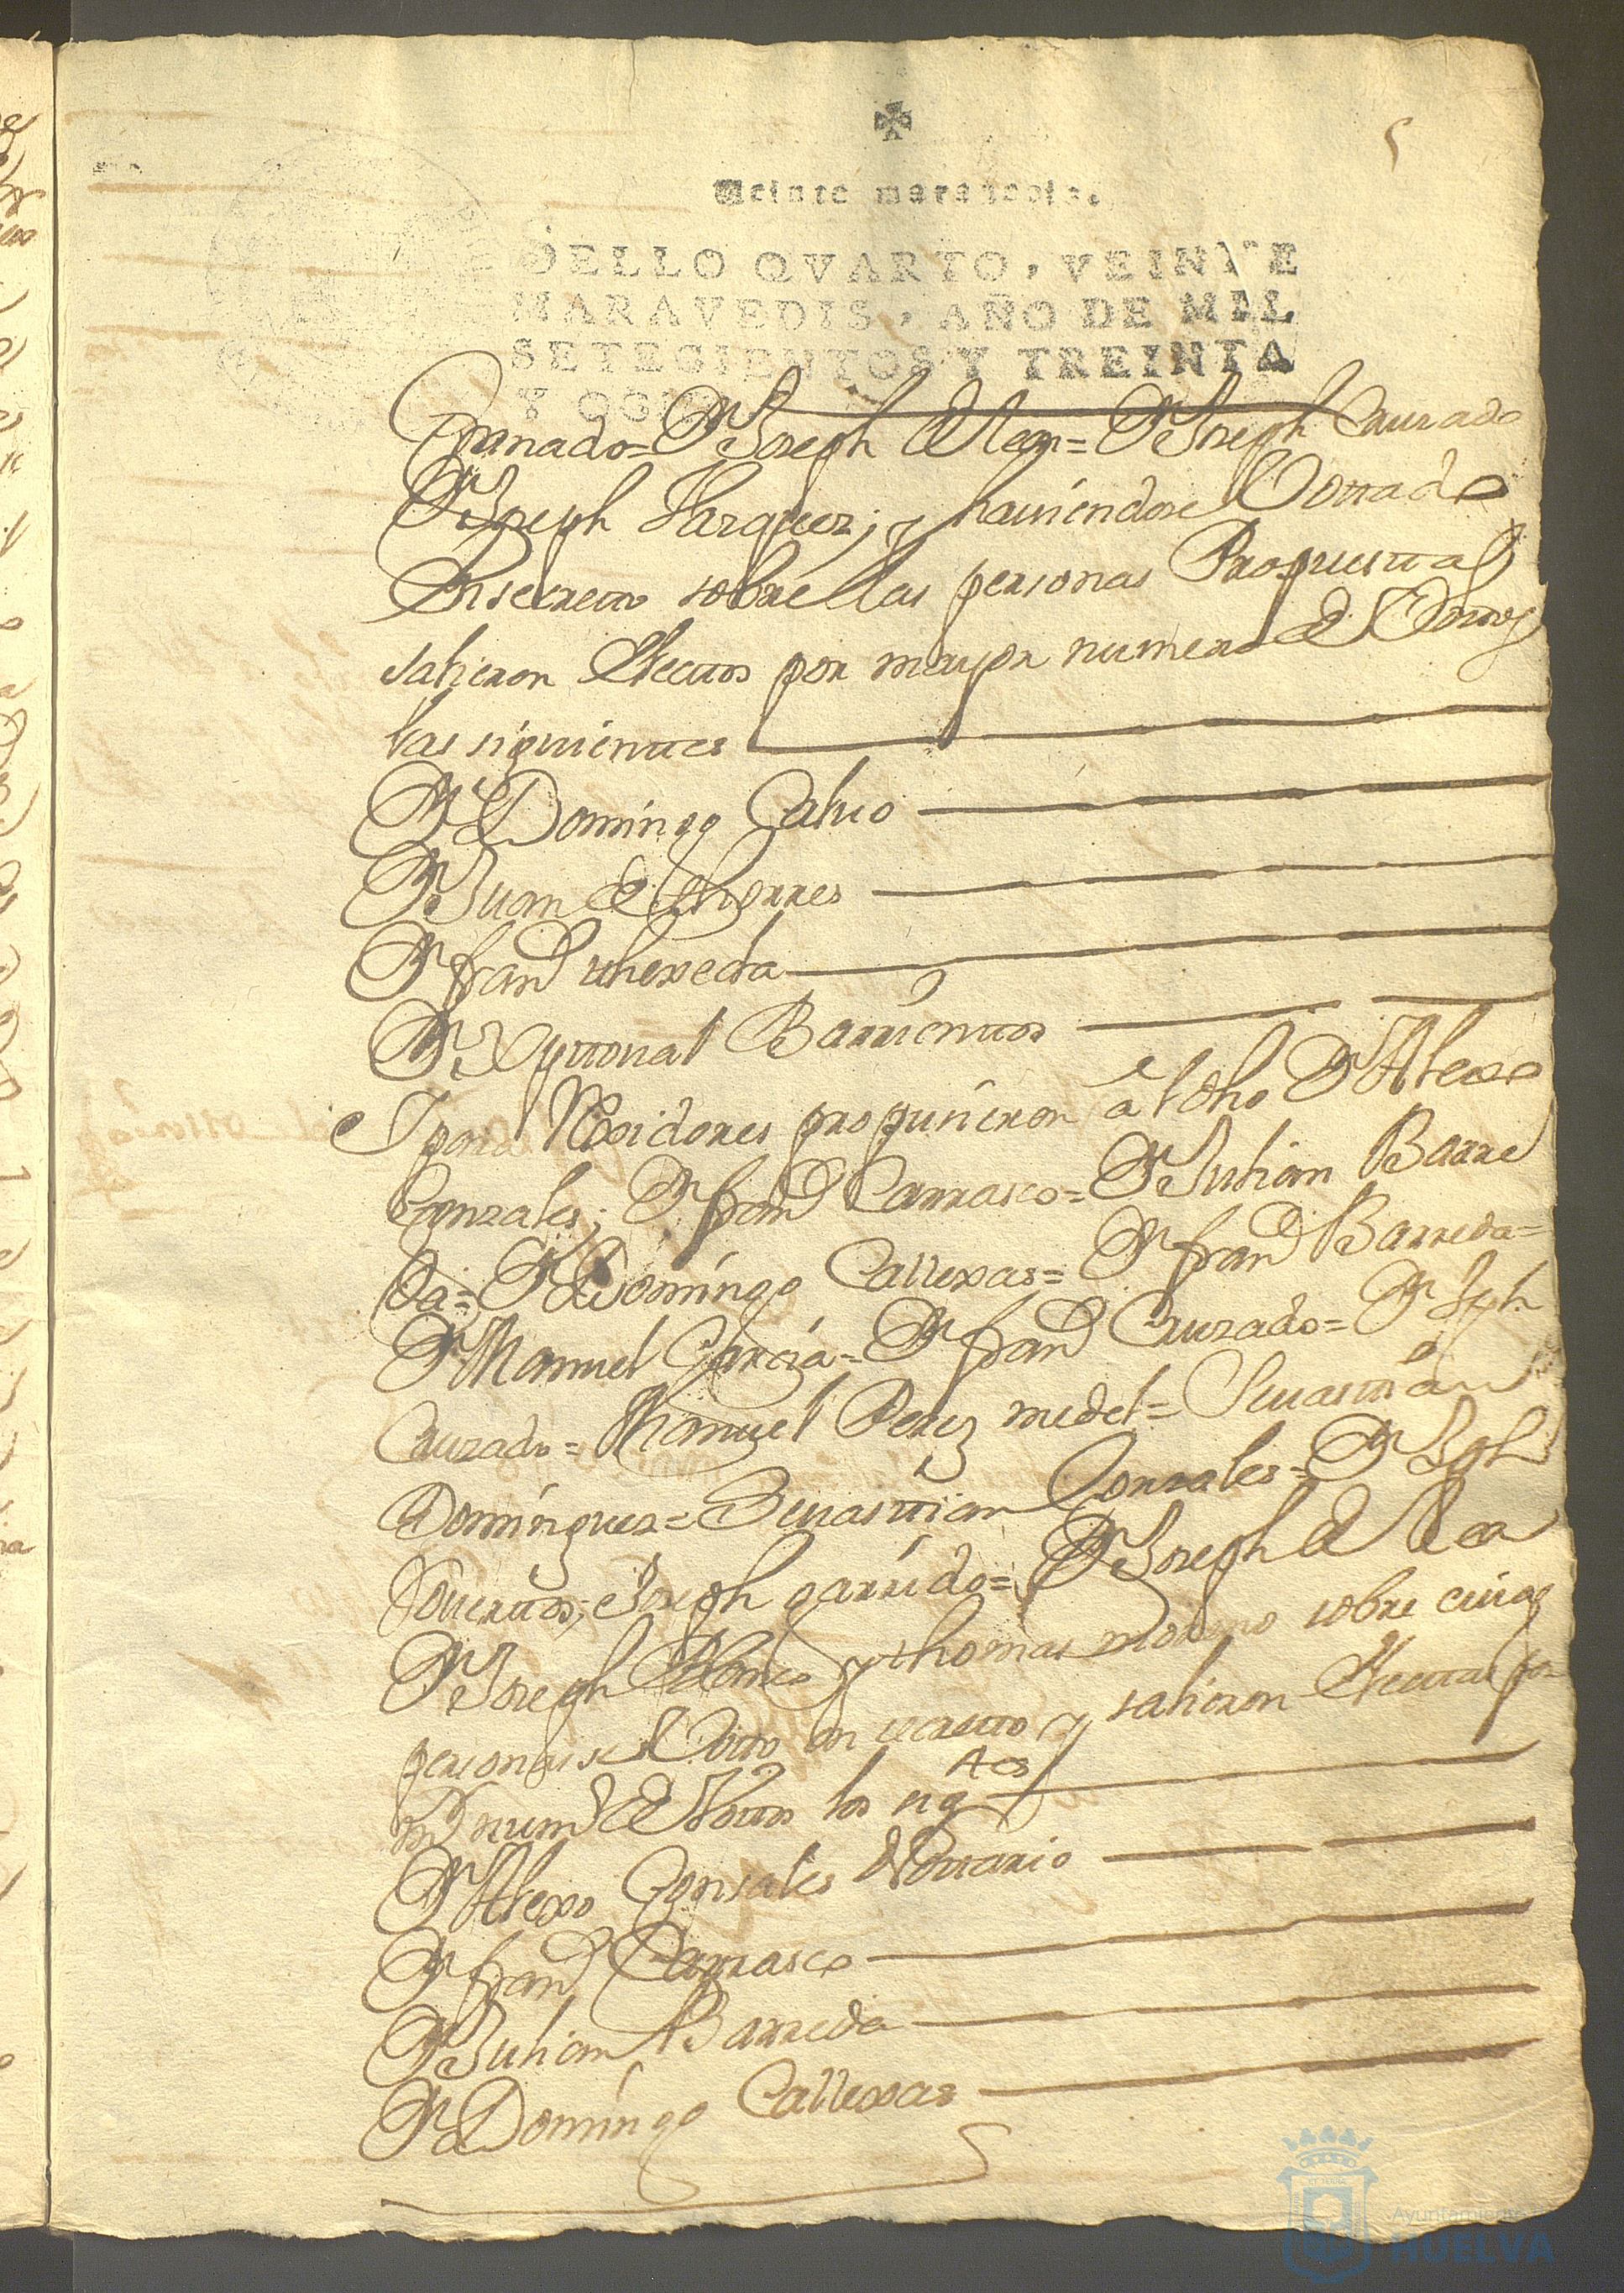 5
Veinte maravedis.
SELLO QVARTO, VEINTE
MARAVEDIS, AÑO DE MIL
SETECIENTOS Y TREINTA
Y OCHO
Granado = Dn Joseph de Leon = Dn Joseph Curado
Dn Joseph Vazquez; y haviendose Votado
en secreto sobre las personas Propuestas
salieron Electos por mayor numero de Votos
los siguientes
Dn Domingo Calvo
Dn Juan de thorres
Dn franco
Dn Xptoval Barrientos
Y para Rexidores propusieron â el dho Dn Alexo
Gonzales; Dn franco Carrasco = Dn Julian Barre
da = Dn Domingo Callexas = Dn franco Barreda =
Dn Manuel Garcia = Dn franco Curado = Dn Jph
Curado = Manuel Perez medel = Sevastian
Dominguez = Sevastian Gonzales = Dn Jph
Joseph garrido = Dn Joseph de Lea
Dn Joseph Blanco y thomas moreno sobre cuias
personas se Voto en secreto y salieron Electos por
mor numo de Votos los sigtes
Dn Alexo Gonsales Notario
Dn franco Carrasco
Dn Julian Barreda
Dn Domingo Callexas
Ayuntamiento de
HUELVA